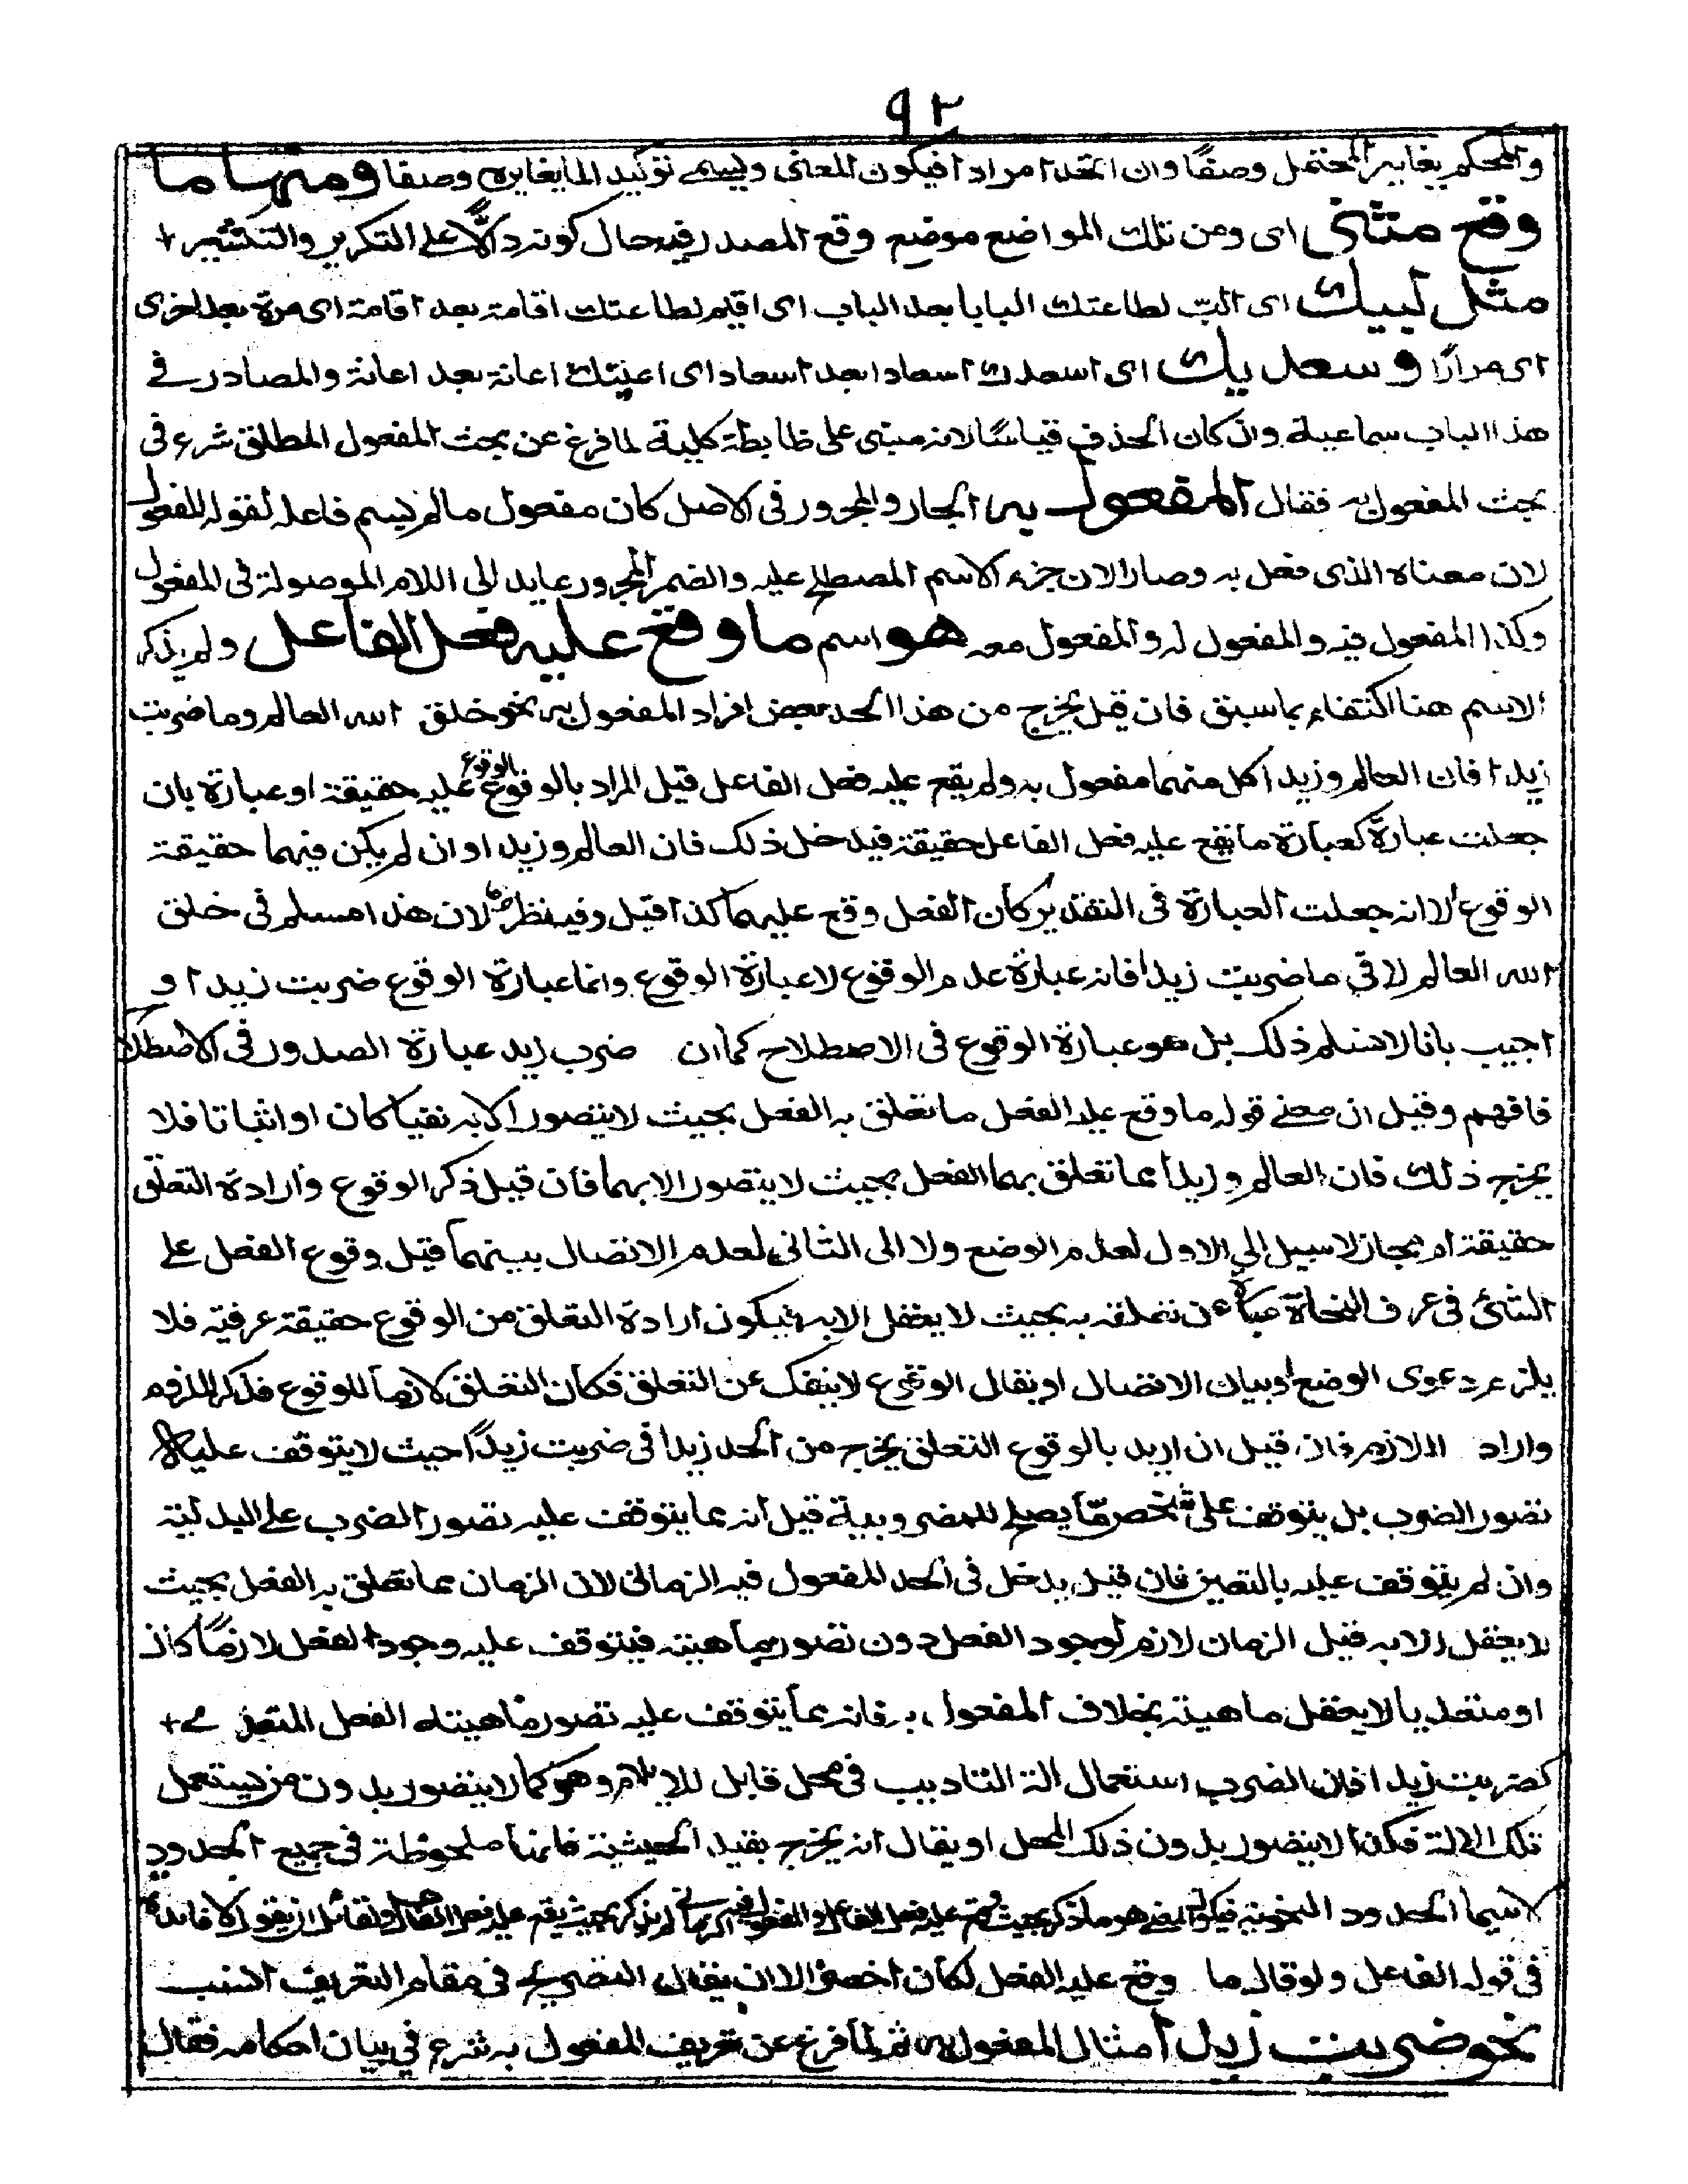 ٩٢
والمحكم يغاير المحتمل وصفًا وان اتحدا مرادا فيكون المعنى ويسمى توكيد الما يغايره وصفا ومنها ما
وقع مثنى اى ومن تلك المواضع موضع وقع المصدر فيه حال كونه دالًّا على التكرير والتكثير
مثل لبيك اى البّ لطاعتك البابا بعد الباب اى اقيم لطاعتك اقامة بعد اقامة اى مرة بعد اخرى
اى مرارًا وسعديك اى اسعدك اسعادا بعد اسعاد اى اعينك اعانة بعد اعانة والمصادر فى
هذا الباب سماعية وان كان الحذف قياسًا لانه مبنى على ظابطة كلية لما فرغ عن بحث المفعول المطلق شرع فى
بحث المفعول به فقال المفعول به الجار والمجرور فى الاصل كان مفعول ما لم يسم فاعله لقوله المفعول
لان معناه الذى فعل به وصار الان جزء الاسم المصطلح عليه والضمير المجرور عايد الى اللام الموصولة فى المفعول
وكذا المفعول فيه والمفعول له والمفعول معه هو اسم ما وقع عليه فعل الفاعل ولم يذكر
الاسم هنا اكتفاء بما سبق فان قيل يخرج من هذا الحد بعض افراد المفعول به نحو خلق الله العالم وما ضربت
زيدا فان العالم وزيدا كل منهما مفعول به ولم يقع عليه فعل الفاعل قيل المراد بالوقوع الوقوع عليه حقيقة او عبارة بان
جعلت عبارة كعبارة ما يقع عليه فعل الفاعل حقيقة فيدخل ذلك فان العالم وزيدا وان لم يكن فيهما حقيقة
الوقوع الا انه جعلت العبارة فى التقدير كأن الفعل وقع عليهما كذا قيل وفيه نظر لان هذا مسلم فى خلق
الله العالم لا فى ما ضربت زيدا فانه عبارة عدم الوقوع لا عبارة الوقوع وانما عبارة الوقوع ضربت زيدا و
اجيب بانا لا نسلم ذلك بل هو عبارة الوقوع فى الاصطلاح كما ان ضرب زيد عبارة الصدور فى الاصطلاح
فافهم وقيل ان معنى قوله ما وقع عليه الفعل ما تعلق به الفعل بحيث لا يتصور الا به نفيا كان او اثباتا فلا
يخرج ذلك فان العالم وزيدا مما تعلق بهما الفعل بحيث لا يتصور الا بهما فان قيل ذكر الوقوع وارادة التعلق
حقيقة ام مجاز لا سبيل الى الاول لعدم الوضع ولا الى الثانى لعدم الاتصال بينهما قيل وقوع الفعل على
الشئ فى عرف النحاة عبارة عن تعلقه به بحيث لا يعقل الا به فيكون ارادة التعلق من الوقوع حقيقة عرفية فلا
يلزم دعوى الوضع او بيان الاتصال او يقال الوقوع لا ينفك عن التعلق فكان التعلق لازما للوقوع فذكر الملزوم
واراد اللازم فان قيل ان اريد بالوقوع التعلق يخرج من الحد زيدا فى ضربت زيدًا حيث لا يتوقف عليه
تصور الضرب بل يتوقف على شخص مّا يصلح للمضروبية قيل انه مما يتوقف عليه تصور الضرب على البدلية
وان لم يتوقف عليه بالتعيين فان قيل يدخل فى الحد المفعول فيه الزمانى لان الزمان مما تعلق به الفعل بحيث
لا يعقل الا به قيل الزمان لازم لوجود الفعل دون تصور ماهيته فيتوقف عليه وجود الفعل لازمًا كان
او متعديا لا يعقل ماهيته بخلاف المفعول به فانه مما يتوقف عليه تصور ماهيته الفعل المتعدى
كضربت زيدا فان الضرب استعمال الة التاديب فى محل قابل للايلام وهو كما لا يتصور بدون من يستعمل
تلك الالة فكذا لا يتصور بدون ذلك المحل او يقال انه يخرج بقيد الحيثية فانها ملحوظة فى جميع الحدود
لاسيما الحدود النحوية فيكون المعنى هو ما ذكر بحيث وقع عليه فعل الفاعل والمفعول فيه الزمانى لم يذكر بحيث يقع عليه فعل الفاعل ولقائل ان يقول لا فائدة
فى قوله الفاعل ولو قال ما وقع عليه الفعل لكان اخصر الا ان يقال التصريح فى مقام التعريف انسب
نحو ضربت زيدا مثال المفعول به ثم لما فرغ عن تعريف المفعول به شرع فى بيان احكامه فقال